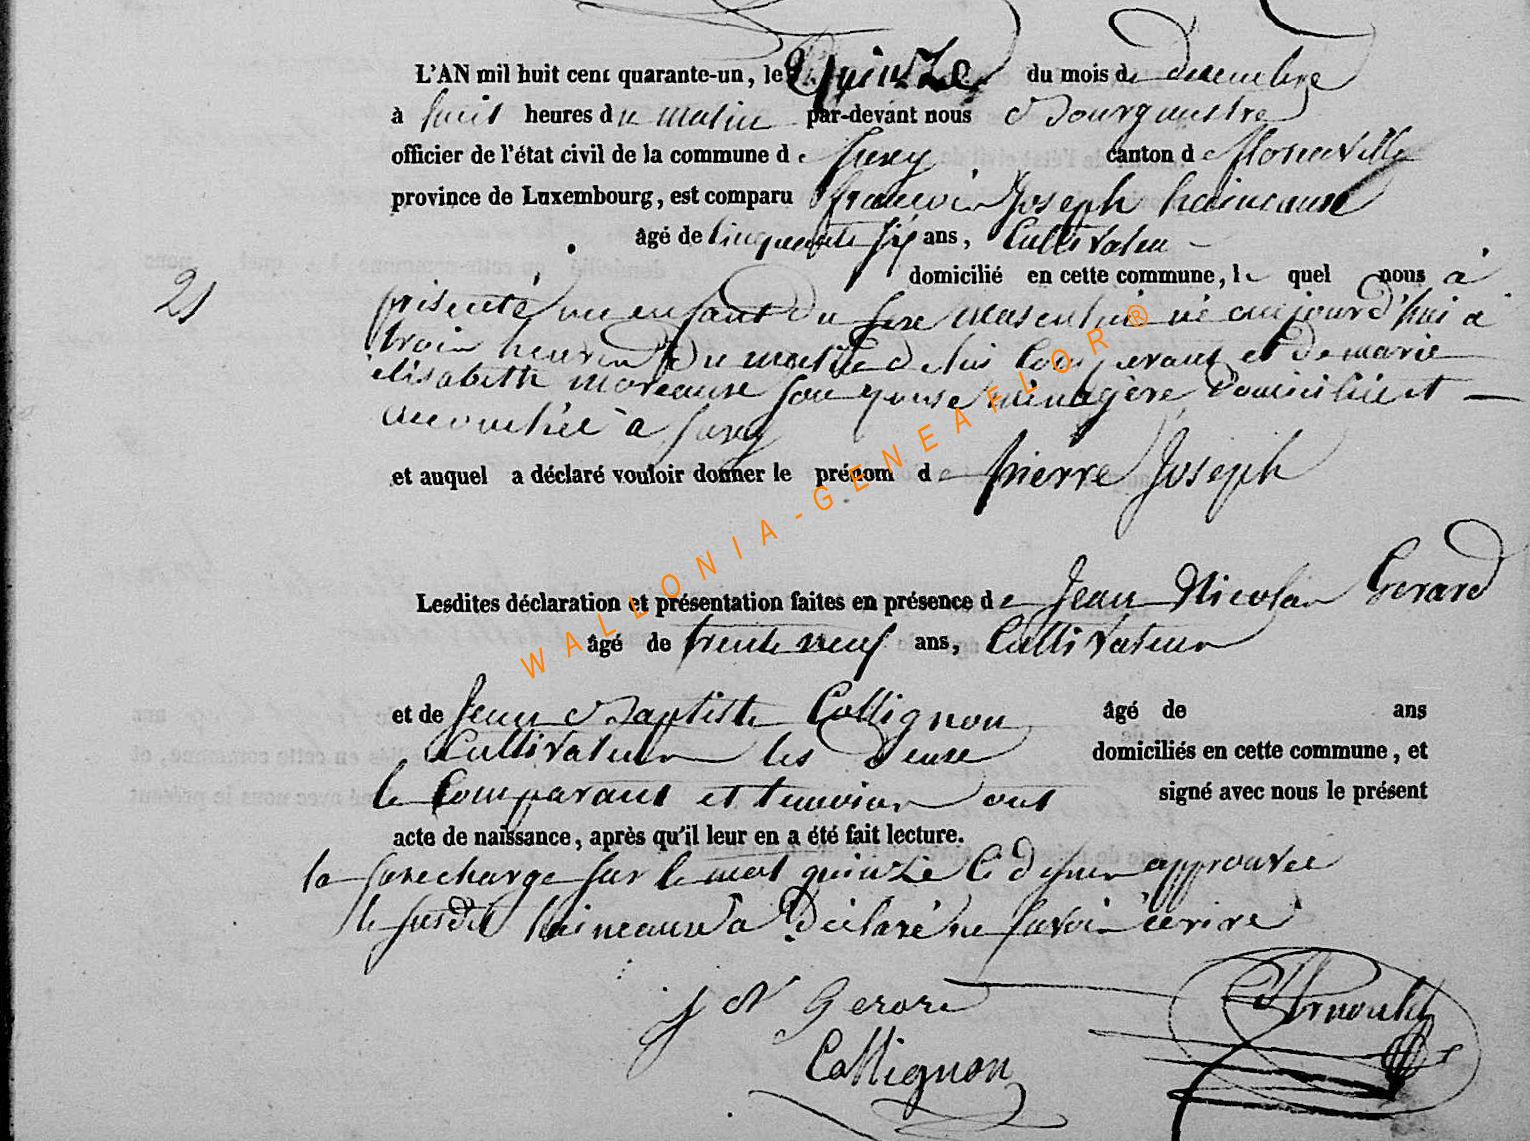 L'AN mil huit cent quarante-un, le Quinze du mois de decembre
à huit heures du matin par-devant nous Bourgmestre
officier de l'état civil de la commune de Suxy canton de florenville
province de Luxembourg, est comparu francois Joseph haineaux
âgé de Cinquante six ans, Cultivateu
domicilié en cette commune, le quel nous à
21 présenté un enfant du sexe masculin né aujourd'hui à
trois heures du matin de lui Comparant et de marie
elisabeth moreaux son epouse ménagère domiciliée et
accouchée à Suxy
et auquel a déclaré vouloir donner le prénom de pierre Joseph
Lesdites déclaration et présentation faites en présence de Jean Nicolas Gerard
âgé de trente neuf ans, Cultivateur
et de Jean Baptiste Collignon âgé de ans
Cultivateur les deux domiciliés en cette commune, et
le Comparant et temoins ont signé avec nous le présent
acte de naissance, après qu'il leur en a été fait lecture.
la surcharge sur le mot quinze Ci dessus approuvée
le susdit haineaux a déclaré ne savoir ecrire
J N Gerard
Arnould
Collignon
WALLONIA-GENEAFLOR®